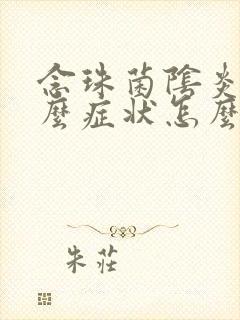 念珠菌陰炎
麼症狀怎麼
朱莊